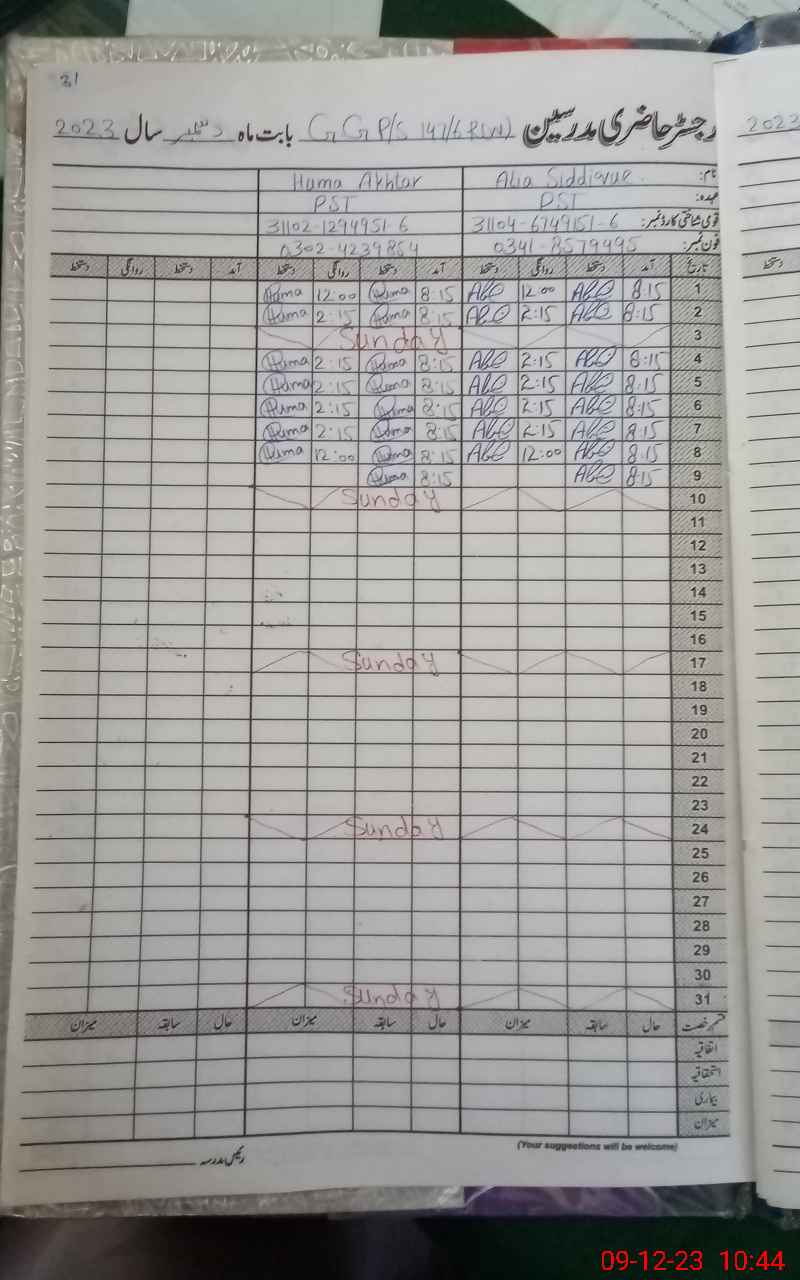 31
رجسٹر حاضری مدرسین G G P/S 147/6R(W) بابت ماہ دسمبر سال 2023
2023
نام: Alia Siddique. Huma Akhtar
عہدہ: PST PST
قومی شناختی کارڈ نمبر: 31104-6749151-6 31102-1294951-6
فون نمبر: 0341-8579495 0302-4239854
تاریخ آمد دستخط روانگی دستخط آمد دستخط روانگی دستخط آمد دستخط روانگی دستخط
دستخط
1 8:15 Alia 12:00 Alia 8:15 Huma 12:00 Huma
2 8:15 Alia 2:15 Alia 8:15 Huma 2:15 Huma
3 Sunday
4 8:15 Alia 2:15 Alia 8:15 Huma 2:15 Huma
5 8:15 Alia 2:15 Alia 8:15 Huma 2:15 Huma
6 8:15 Alia 2:15 Alia 8:15 Huma 2:15 Huma
7 8:15 Alia 2:15 Alia 8:15 Huma 2:15 Huma
8 8:15 Alia 12:00 Alia 8:15 Huma 12:00 Huma
9 8:15 Alia 8:15 Huma
10 Sunday
11
12
13
14
15
16
17 Sunday
18
19
20
21
22
23
24 Sunday
25
26
27
28
29
30
31 Sunday
قسم رخصت حال سابقہ میزان حال سابقہ میزان حال سابقہ میزان
اتفاقیہ
استحقاقیہ
بیماری
میزان
(Your suggestions will be welcome)
رئیس مدرسہ
09-12-23 10:44